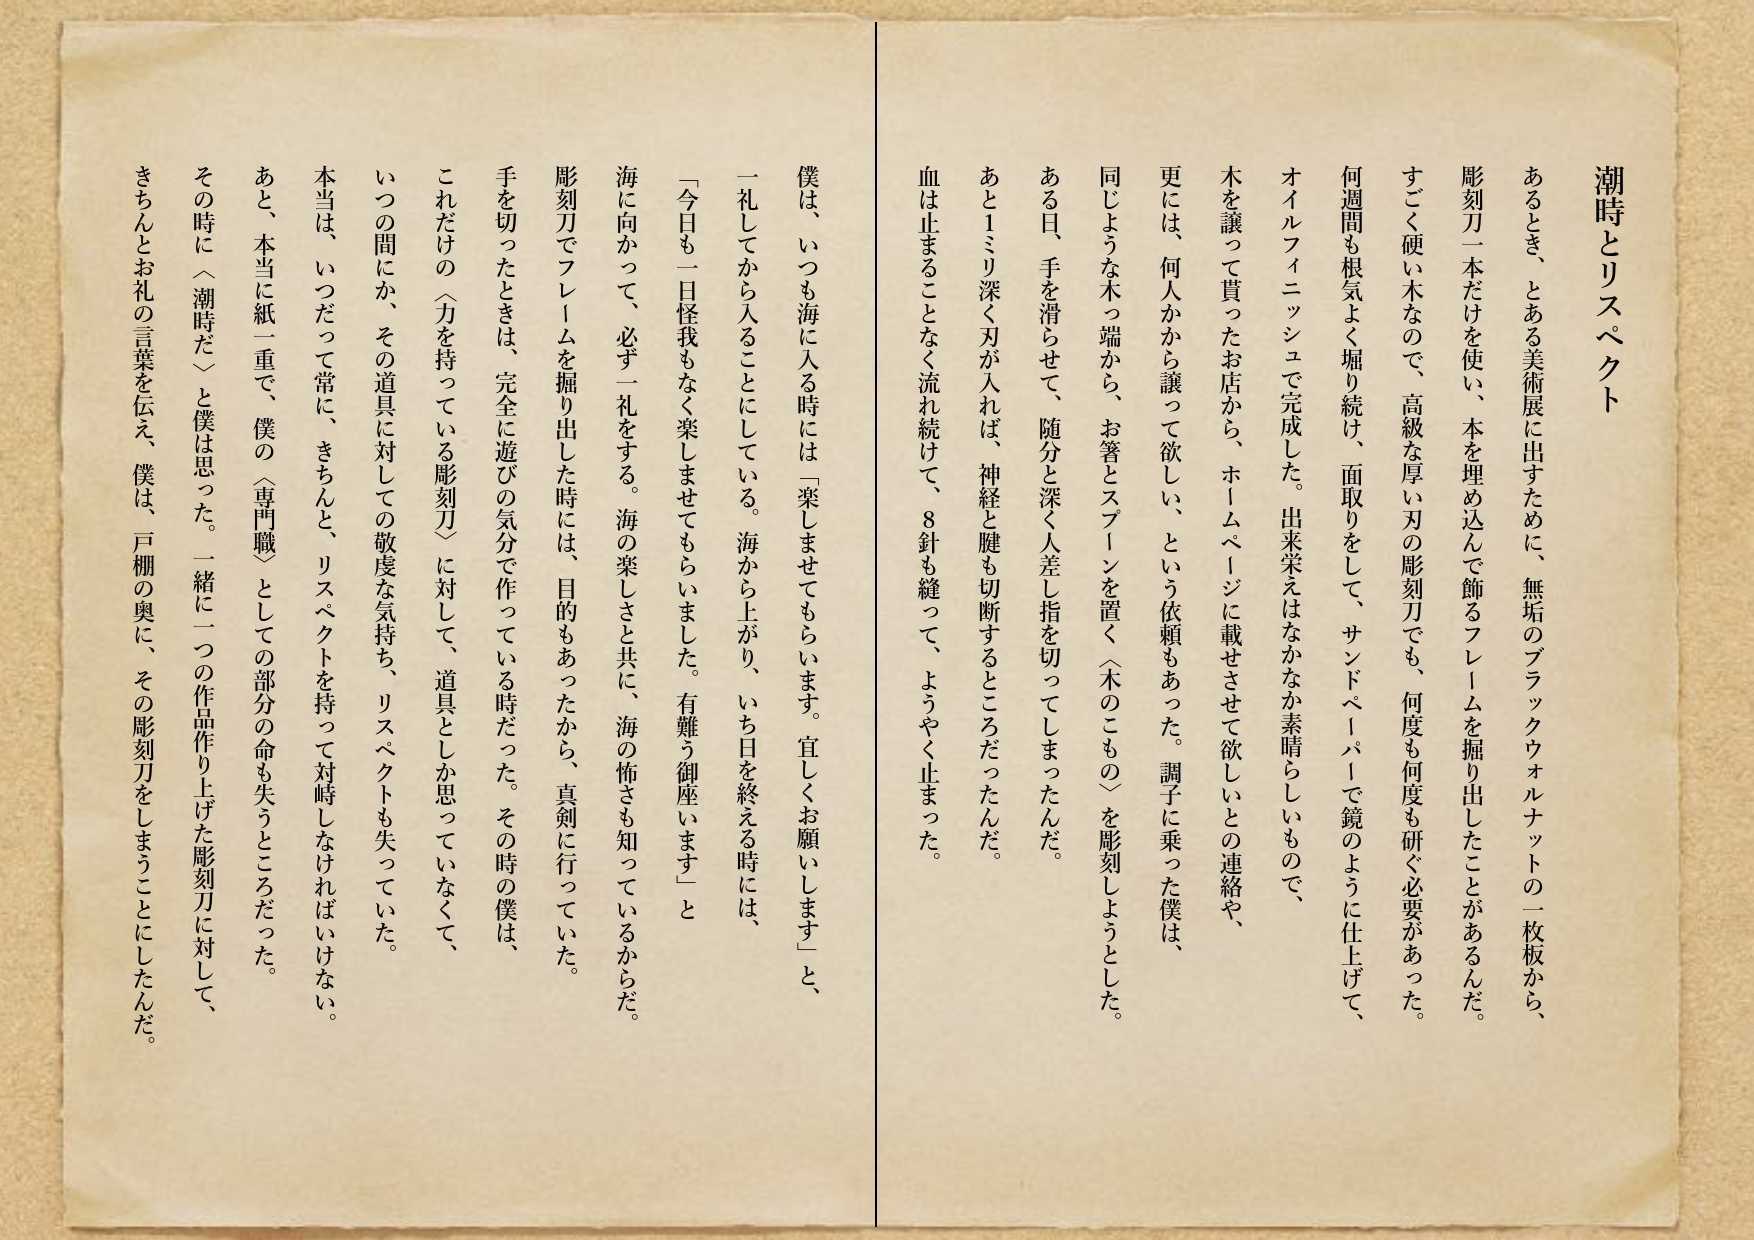 潮時とリスペクト
あるとき、とある美術展に出すために、無垢のブラックウォルナットの一枚板から、
彫刻刀一本だけを使い、本を埋め込んで飾るフレームを掘り出したことがあるんだ。
すごく硬い木なので、高級な厚い刃の彫刻刀でも、何度も何度も研ぐ必要があった。
何週間も根気よく堀り続け、面取りをして、サンドペーパーで鏡のように仕上げて、
オイルフィニッシュで完成した。出来栄えはなかなか素晴らしいもので、
木を譲って貰ったお店から、ホームページに載せさせて欲しいとの連絡や、
更には、何人かから譲って欲しい、という依頼もあった。調子に乗った僕は、
同じような木っ端から、お箸とスプーンを置く〈木のこもの〉を彫刻しようとした。
ある日、手を滑らせて、随分と深く人差し指を切ってしまったんだ。
あと1ミリ深く刃が入れば、神経と腱も切断するところだったんだ。
血は止まることなく流れ続けて、8針も縫って、ようやく止まった。
僕は、いつも海に入る時には「楽しませてもらいます。宜しくお願いします」と、
一礼してから入ることにしている。海から上がり、いち日を終える時には、
「今日も一日怪我もなく楽しませてもらいました。有難う御座います」と
海に向かって、必ず一礼をする。海の楽しさと共に、海の怖さも知っているからだ。
彫刻刀でフレームを掘り出した時には、目的もあったから、真剣に行っていた。
手を切ったときは、完全に遊びの気分で作っている時だった。その時の僕は、
これだけの〈力を持っている彫刻刀〉に対して、道具としか思っていなくて、
いつの間にか、その道具に対しての敬虔な気持ち、リスペクトも失っていた。
本当は、いつだって常に、きちんと、リスペクトを持って対峙しなければいけない。
あと、本当に紙一重で、僕の〈専門職〉としての部分の命も失うところだった。
その時に〈潮時だ〉と僕は思った。一緒に一つの作品作り上げた彫刻刀に対して、
きちんとお礼の言葉を伝え、僕は、戸棚の奥に、その彫刻刀をしまうことにしたんだ。